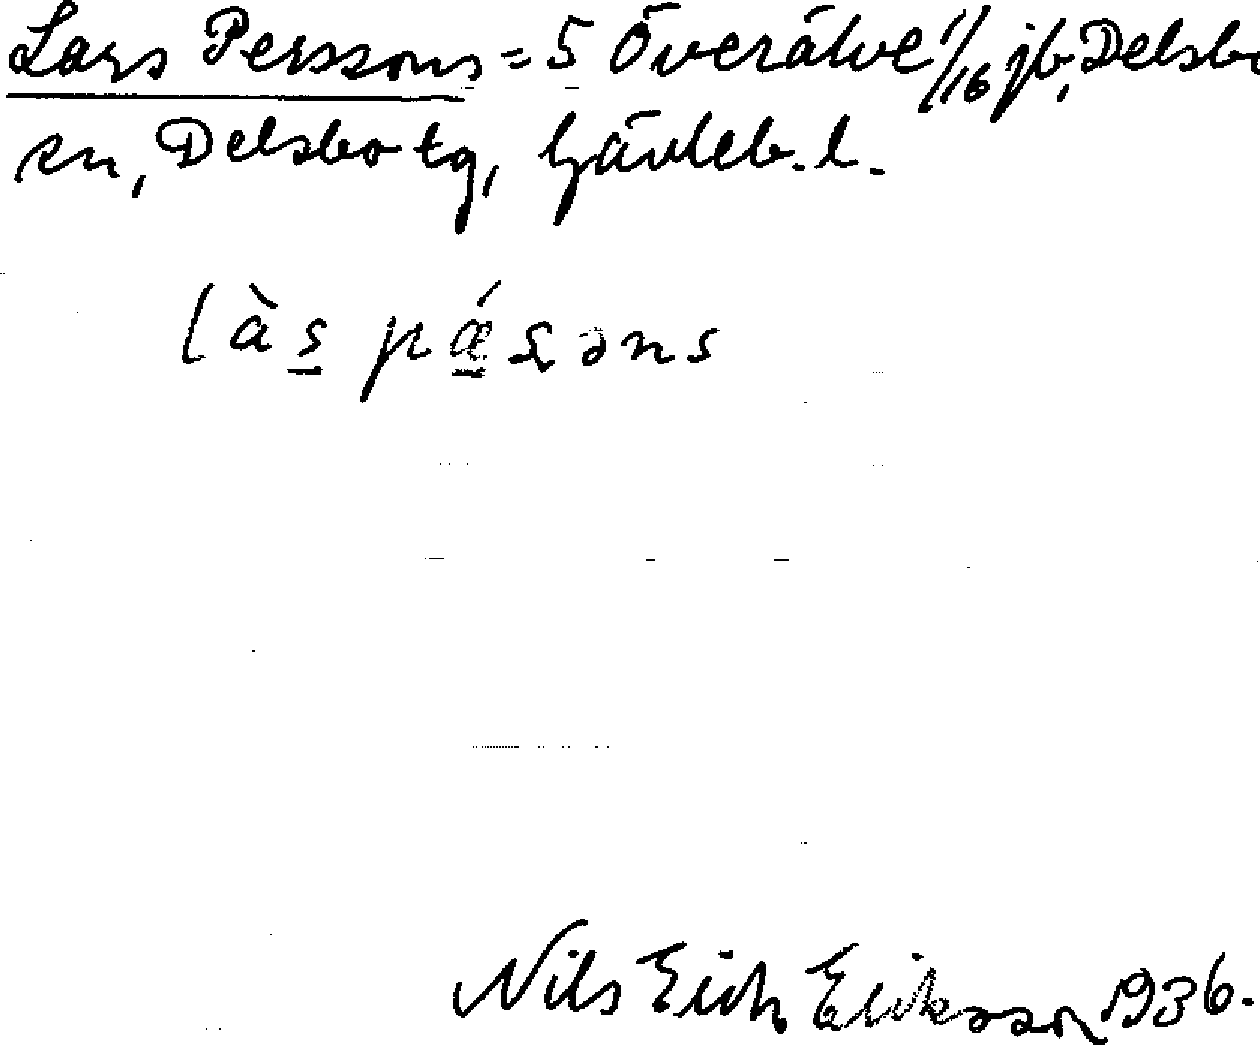 Lars Perssons = 5 Överälve 1/16 jb, Delsbo
sn, Delsbo tg, Gävleb. l.
làs pǽsəns
Nils Erich Eriksson 1936.